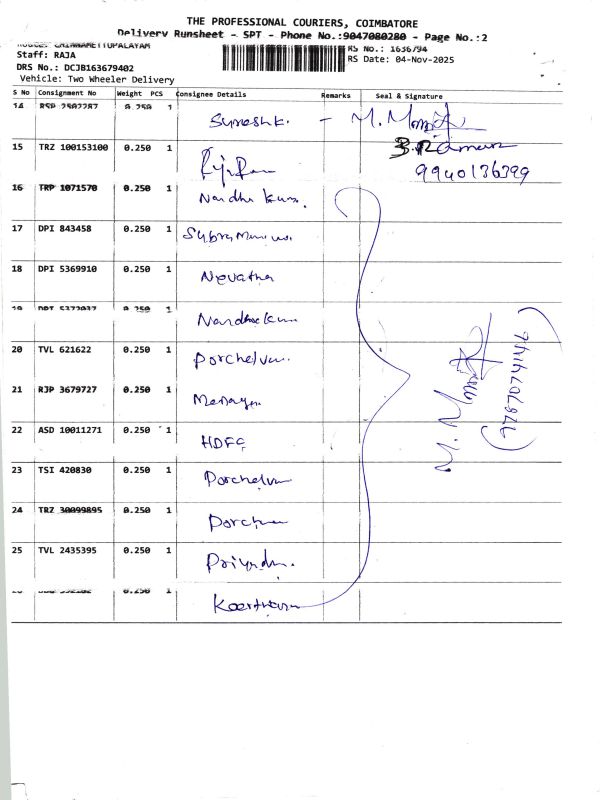 THE PROFESSIONAL COURIERS, COIMBATORE
Delivery Runsheet - SPT - Phone No.:9047080280 - Page No.:2
Staff: RAJA
RS No.: 1636794
DRS No.: DCJB163679402
RS Date: 04-Nov-2025
Vehicle: Two Wheeler Delivery
S No Consignment No Weight PCS Consignee Details Remarks Seal & Signature
14 RSP 2502287 0.250 1 Suresh k. - M.
15 TRZ 100153100 0.250 1
9940136399
16 TRP 1071570 0.250 1 Nandha
17 DPI 843458 0.250 1
18 DPI 5369910 0.250 1 Nevatha
19 DPI 5372037 0.250 1
20 TVL 621622 0.250 1 Porchelvan.
21 RJP 3679727 0.250 1
22 ASD 10011271 0.250 1 HDFC
23 TSI 420830 0.250 1 Porchelvan
24 TRZ 30099895 0.250 1
25 TVL 2435395 0.250 1
0.250 1
M.